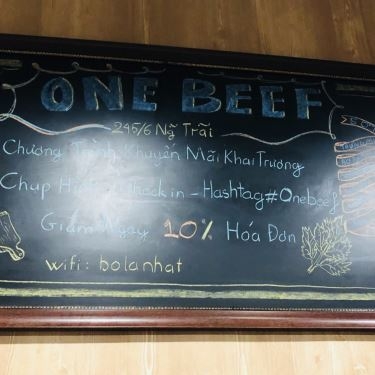 ONE BEEF
245/6 Ng Trãi
Chương Trình Khuyến Mãi Khai Trương
Chụp Hình Check in - Hashtag#Onebeef
Giảm Ngay 10% Hóa Đơn
wifi: bolanhat